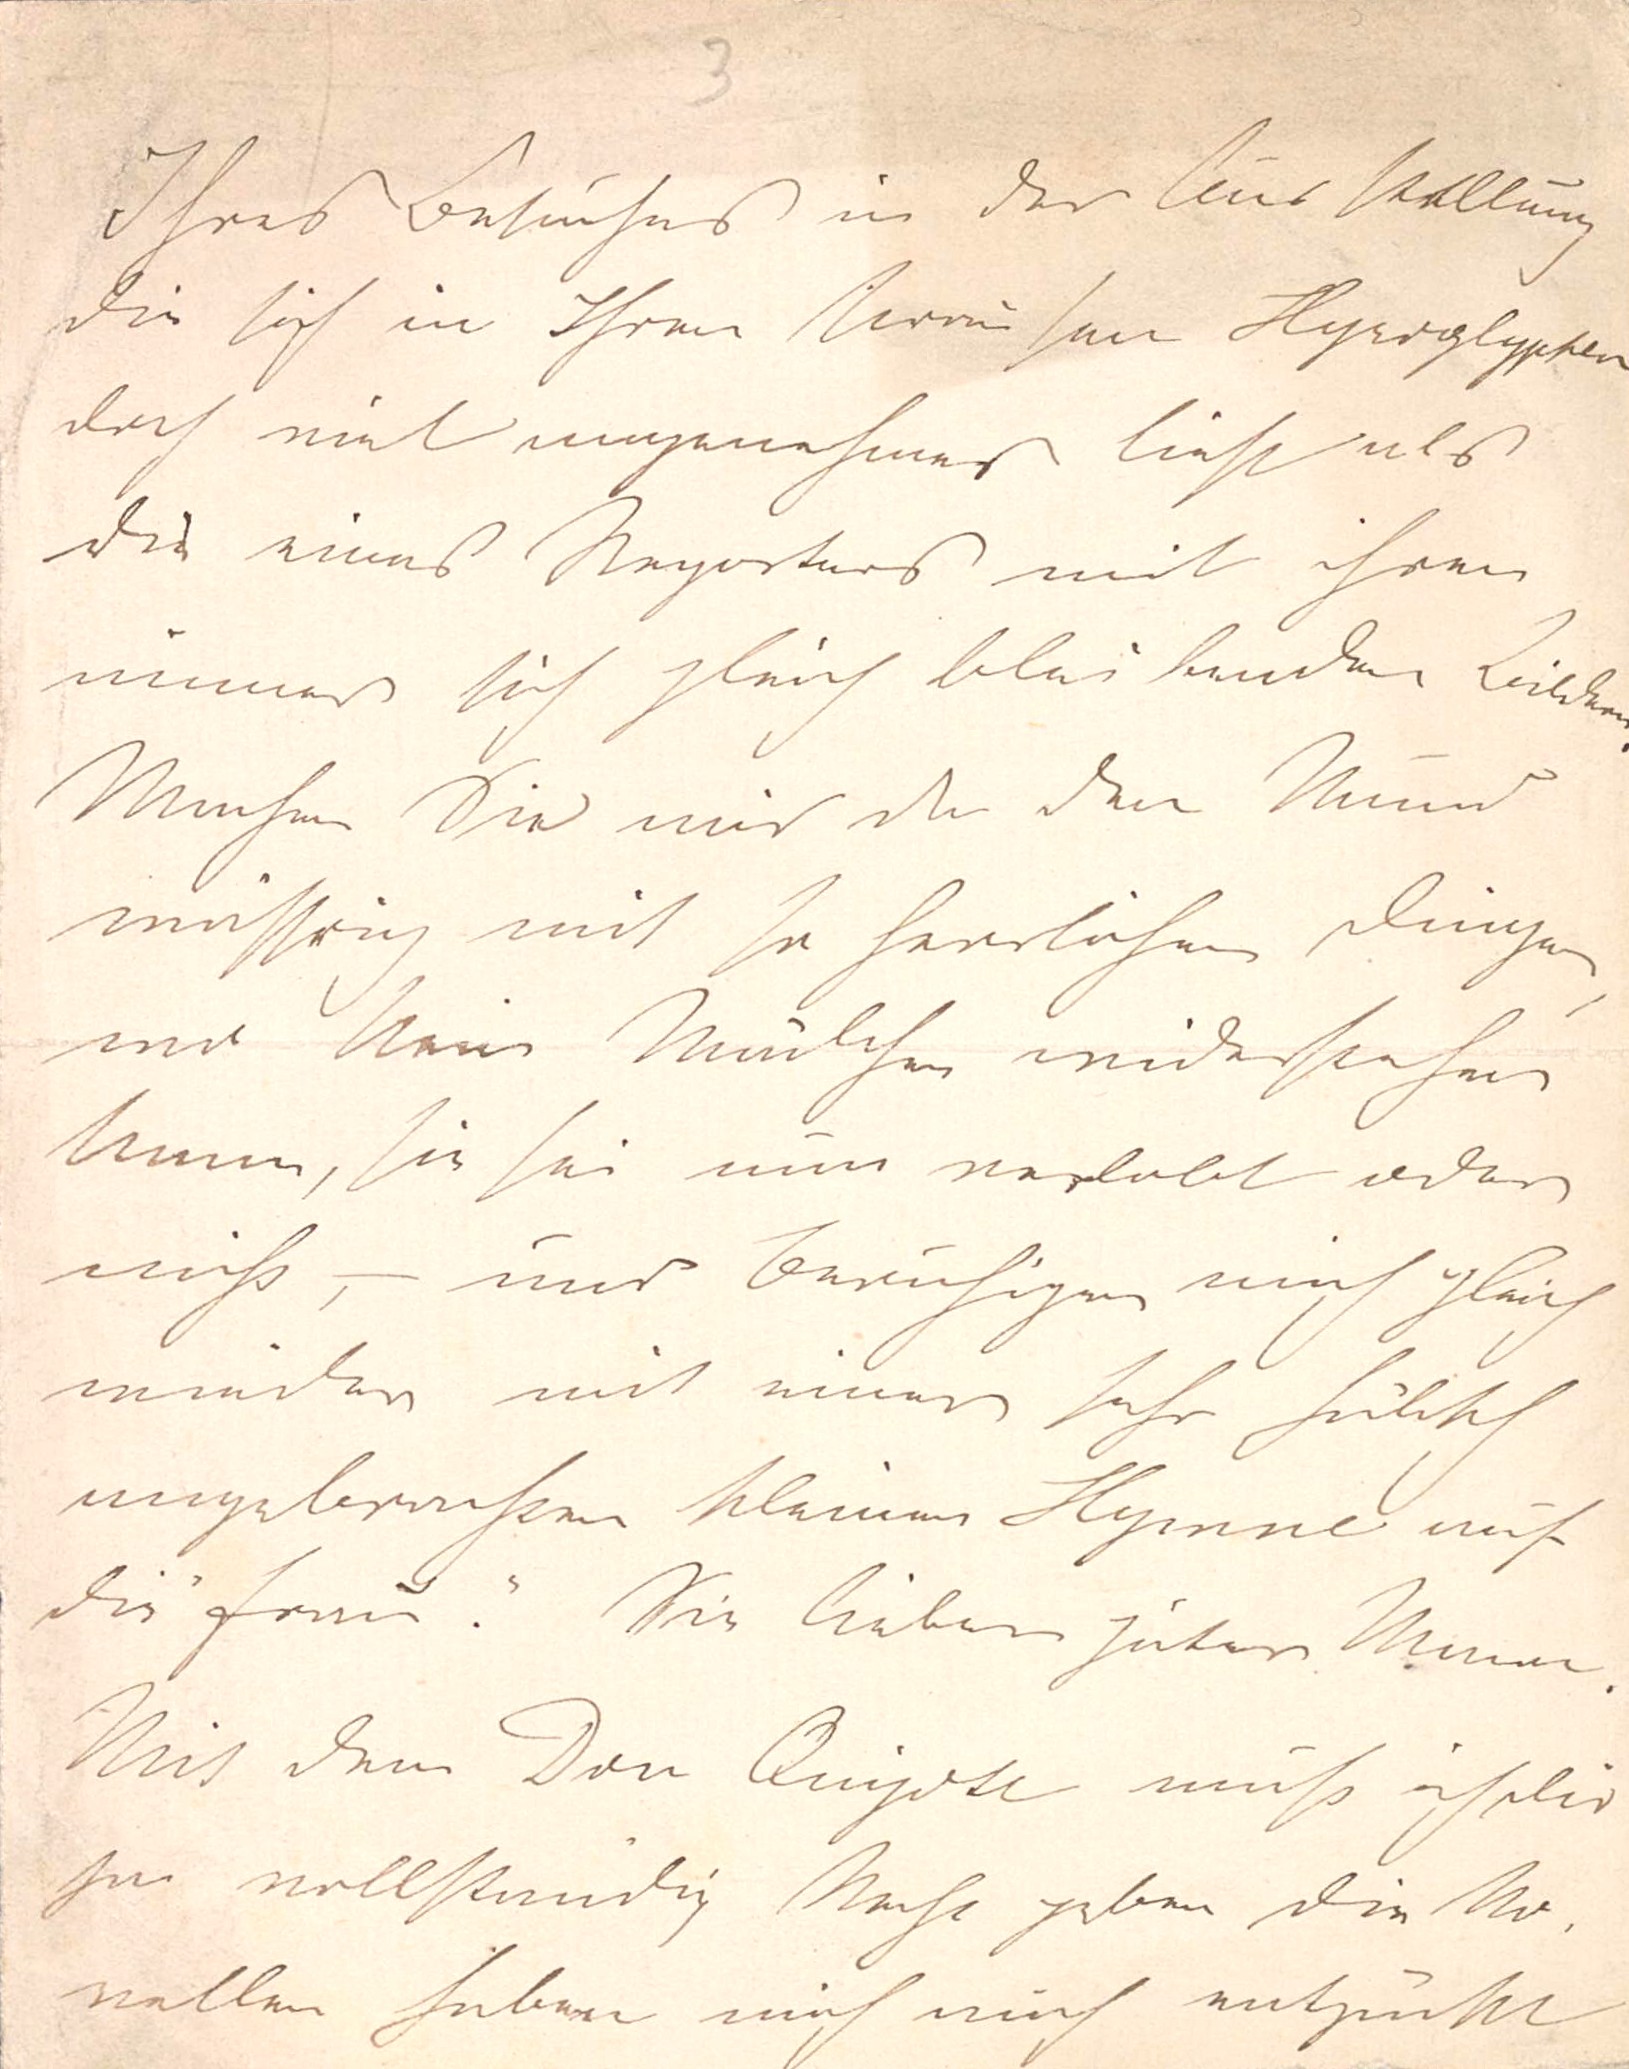 3
Ihres Besuches in der Ausstellung
die sich in Ihren krausen Hyeroglyphen
doch viel angenehmer liest als
die eines Reporters mit ihren
immer sich gleich bleibenden Bildern.
Machen Sie mir da den Mund
wässrig mit so herrlichen Dingen,
wo kein Mädchen widerstehen
kann, sie sei nun verlobt oder
nicht, – und beruhigen mich gleich
wieder mit einer sehr hübsch
angebrachten kleinen Hymne auf
die "Frau." Sie lieber guter Mann.
Mit dem Don Quijote muß ich
vollständig Recht geben die No,
vellen haben mich auch entzückt